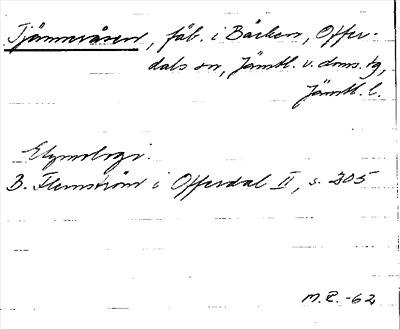 Tjämnvåsen, fäb. i Bäcken, Offer-
dals sn, Jämtl. v. doms. tg,
Jämtl. l.
Etymologi.
B. Flemström i Offerdal II, s. 305
M.E. -62